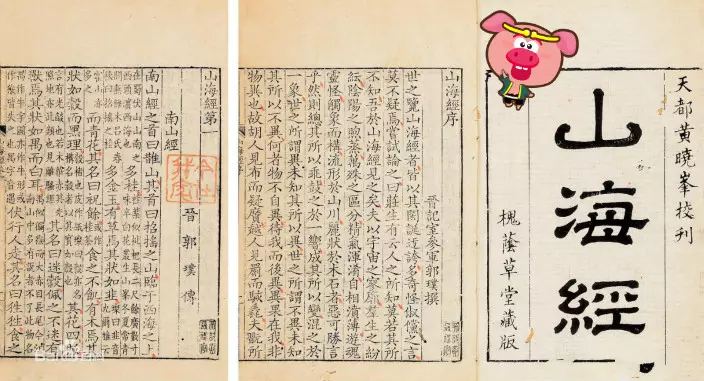 天都黄曉峯校刋
山海經
槐蔭草堂藏版
山海經序
晉記室參軍郭璞撰
世之覽山海經者皆以其閎誕迂誇多奇怪俶儻之言
莫不疑焉嘗試論之曰莊生有云人之所知莫若其所
不知吾於山海經見之矣夫以宇宙之寥廓羣生之紛
紜陰陽之煦蒸萬殊之區分精氣渾淆自相濆薄遊魂
靈怪觸象而構流形於山川麗狀於木石者惡可勝言
乎然則總其所以乖鼓之於一響成其所以變混之於
一象世之所謂異未知其所以異世之所謂不異未知
其所以不異何者物不自異待我而後異異果在我非
物異也故胡人見布而疑黂越人見罽而駭毳夫翫所
山海經第一
南山經
晉 郭璞傳
南山經之首曰䧿山其首曰招搖之山臨于西海之上
在蜀伏山山南之西頭濱西海也多桂桂葉似枇杷長二尺餘廣數寸味辛白花叢生山峯冬夏常青
間無雜木呂氏春秋曰招搖之桂多金玉有草焉其狀如韭璨曰韭音九爾雅云
霍山亦多之而青花其名曰祝餘或作桂荼食之不飢有木焉其
狀如穀而黑理其花四照
其名曰迷穀佩之不迷有
獸焉其狀如禺而白耳
伏行人走其名曰狌狌食之